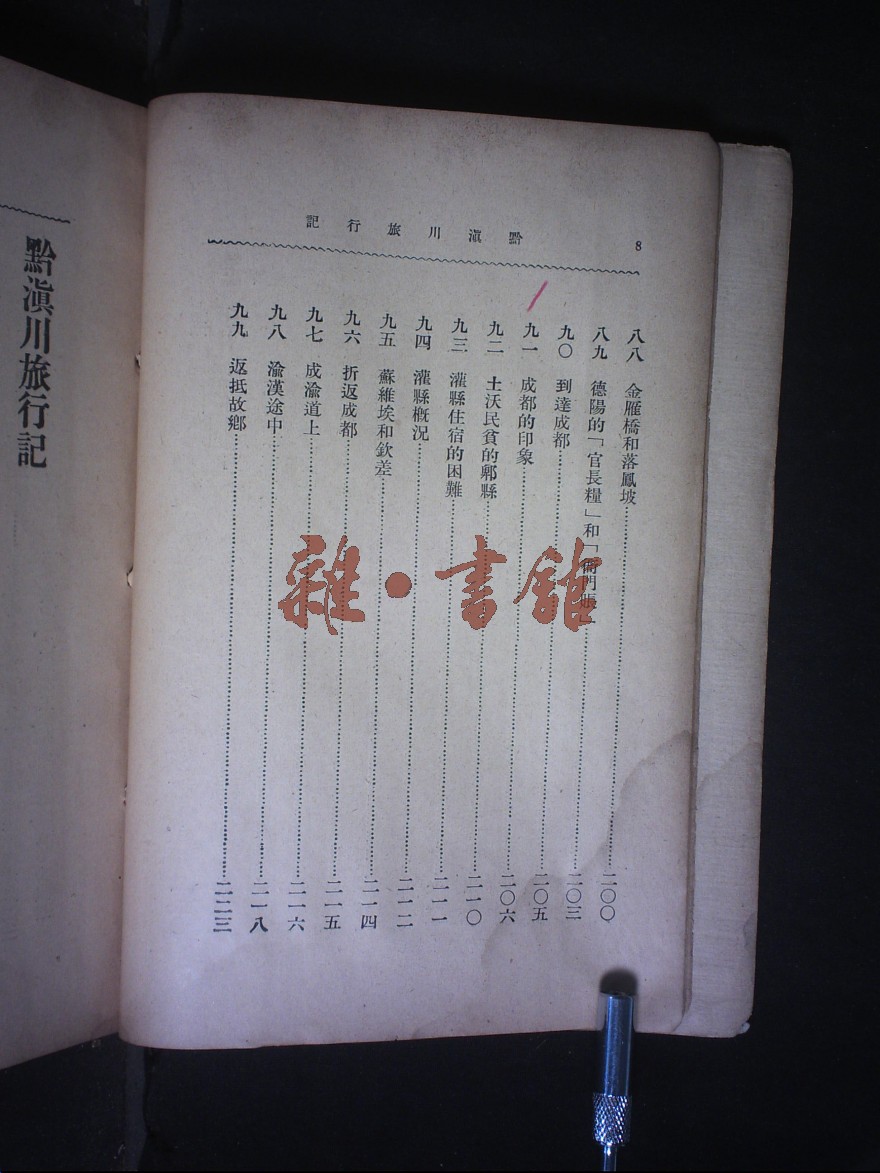 8
黔滇川旅行記
八八 金雁橋和落鳳坡……二〇〇
八九 德陽的「官長糧」和「衙門賬」……二〇三
九〇 到達成都……二〇五
九一 成都的印象……二〇六
九二 土沃民貧的郫縣……二一〇
九三 灌縣住宿的困難……二一一
九四 灌縣概況……二一二
九五 蘇維埃和欽差……二一四
九六 折返成都……二一五
九七 成渝道上……二一六
九八 渝漢途中……二一八
九九 返抵故鄉……二二三
黔滇川旅行記
雜·書館